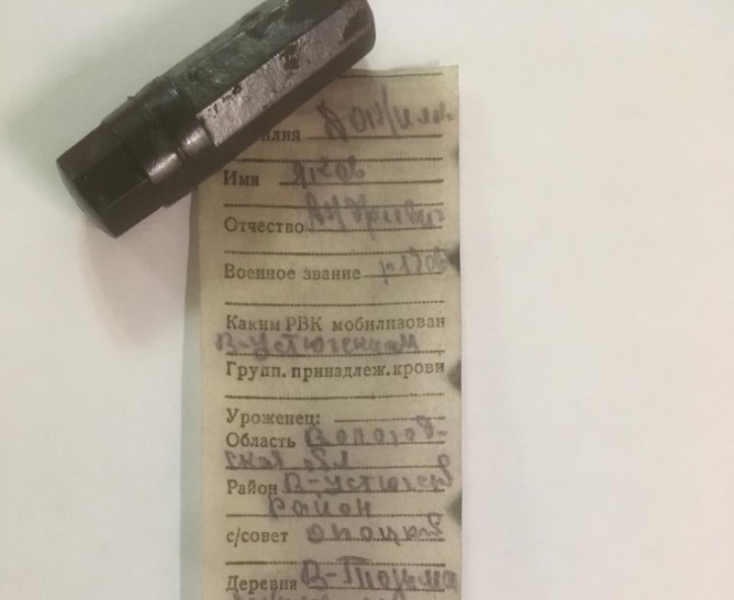 илия
Имя Яков
Отчество Андреевич
Военное звание р-довой
Каким РВК мобилизован
В-Устюгским
Групп. принадлеж. крови
Уроженец:
Область Вологод-
ская обл
Район В-Устюгск
район
с/совет Опоцкий
Деревня